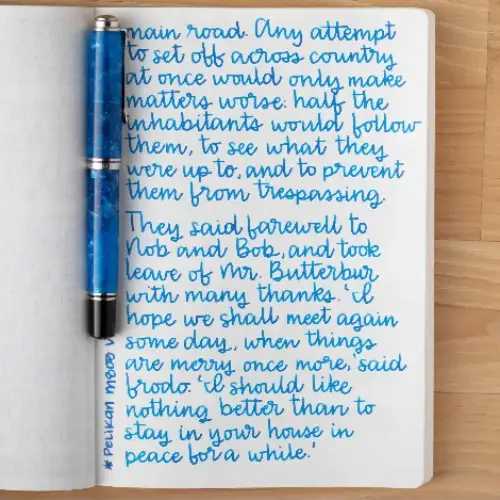 main road. Any attempt
to set off across country
at once would only make
matters worse: half the
inhabitants would follow
them, to see what they
were up to, and to prevent
them from trespassing.
They said farewell to
Nob and Bob, and took
leave of Mr. Butterbur
with many thanks. 'I
hope we shall meet again
some day, when things
are merry once more, said
Frodo. 'I should like
nothing better than to
stay in your house in
peace for a while.'
* Pelikan m805 V